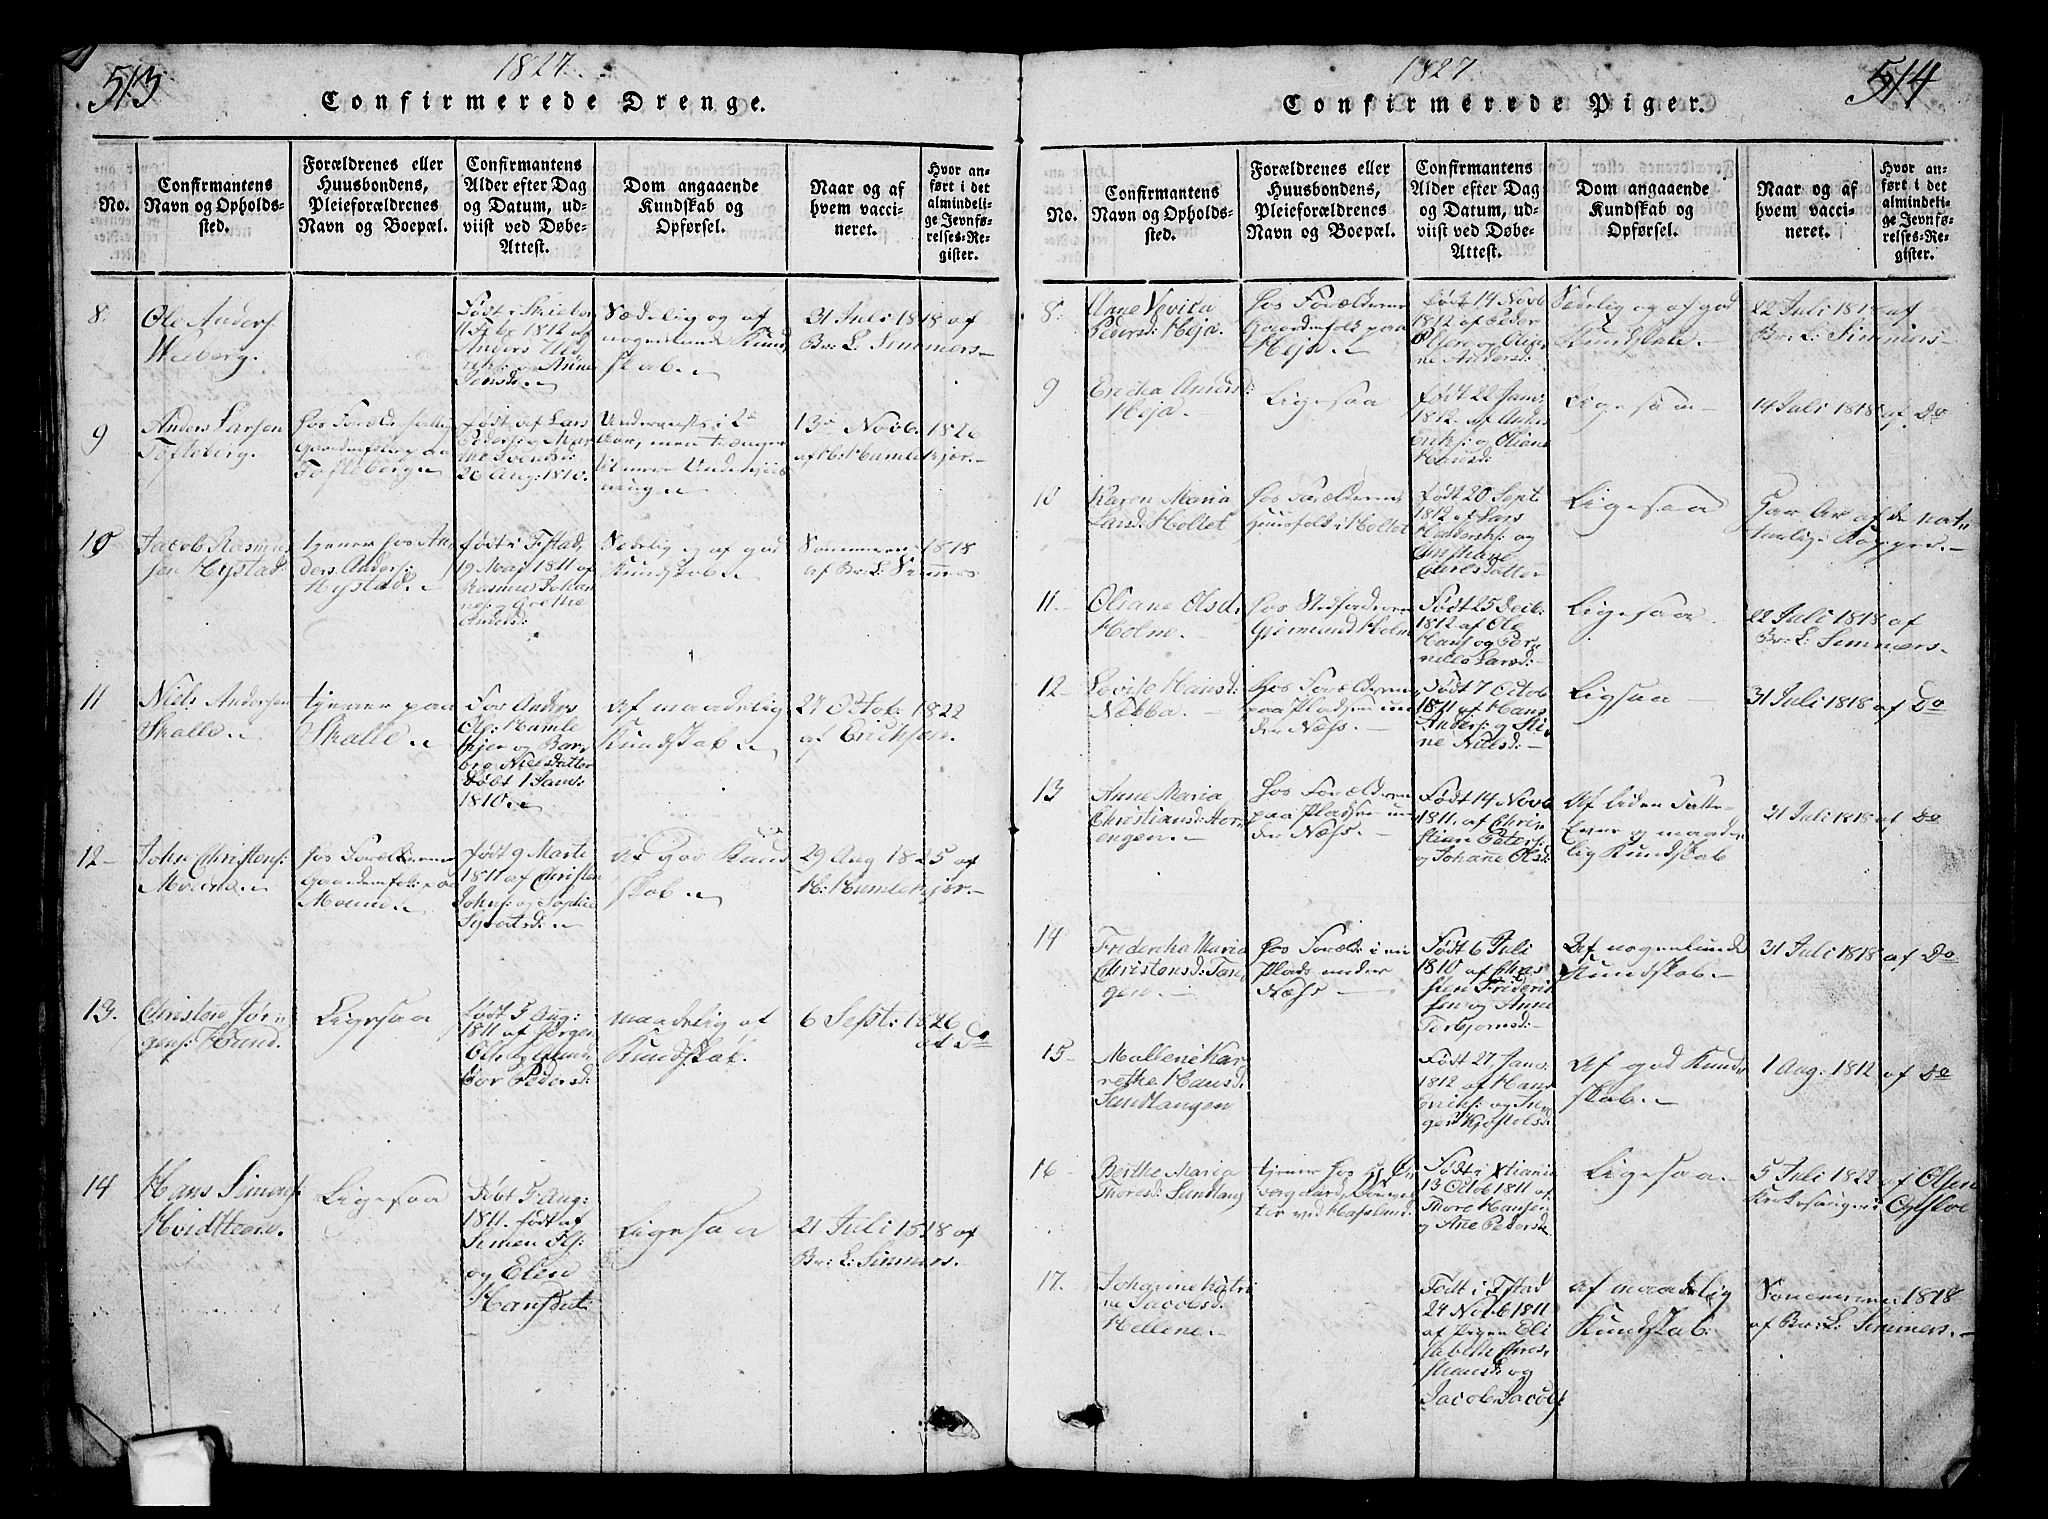 513
1827.
Confirmerede Drenge.
No.
Confirmantens
Navn og Opholds-
sted.
Forældrenes eller
Huusbondens,
Pleieforældrenes
Navn og Boepæl.
Confirmantens
Alder efter Dag
og Datum, ud-
viist ved Døbe-
Attest.
Dom angaaende
Kundskab og
Opførsel.
Naar og af
hvem vacci-
neret.
Hvor an-
ført i det
almindeli-
ge Jevnfø-
relses-Re-
gister.
8.
Ole Anders
Wieberg.
Født i
11 Febr 1812 af
Anders
og Anne
Sædelig og af
nogenlunde Kund
skab.
31 Juli 1818 af
Br: L. Simmers
9
Anders Larsen
Tofteberg.
hos Foræld:
Tofteberg
født af Lars
Peders: og
26 Aug: 1810.
Underviist i 2
Aar, men trænger
til mere Underviis
ning
13 Novb. 1826
af H: Humlekjær.
10
Jacob Rasmus
sen Hystad
tjener hos An
ders Anders:
Hystad
født i Fstad
19 Maj 1811 af
Rasmus Johan
nes: og Grethe
Sædelig og af god
Kundskab
Sommeren 1818
af Br: L: Simmers
11
Niels Andersen
Skalle
tjener paa
Skalle
Fos Anders
Ols: Humle
kjær og Bar
bro Nielsdatter
Døbt 1 Janr:
1810.
Af maadelig
Kundskab
27 Octob: 1822
af Erichsen.
12
John Christens:
Moum
hos Forældrene
gaardmfolk: paa
Moum
født 9 Marts
1811 af Christen
Johns: og Sophie
Syvertsd:
Af god Kund
skab
29 Aug 1825 af
H: Humlekjær.
13.
Christen Jør
gens: Hund.
Ligesaa
født 5 Aug:
1811 af Jørgen
Ols: og
Pedersd:
maadelig af
Kundskab.
6 Sept: 1826
af Do
14
Hans Simons:
Hvidsteen.
Ligesaa
Døbt 5 Aug:
1811. født af
Simen
og Elen
Hansdat:
Ligesaa
21 Juli 1818 af
Br: L: Simmers.
514
1827
Confirmerede Piger.
No.
Confirmantens
Navn og Opholds-
sted.
Forældrenes eller
Huusbondens,
Pleieforældrenes
Navn og Boepæl.
Confirmantens
Alder efter Dag
og Datum, ud-
viist ved Døbe-
Attest.
Dom angaaende
Kundskab og
Opførsel.
Naar og af
hvem vacci-
neret.
Hvor an-
ført i det
almindeli-
ge Jevnfø-
relses-Re-
gister.
8.
Anne
Pedersd: Heja.
hos Forældrene
Gaardmfolk paa
Heja.
født 14 Novb
1812 af Peder
Olsen og
Andersd:
Sædelig og af god
Kundskab.
22 Juli 1818 af
Br: L: Simmers
9
Ericka Andersd:
Heja.
Ligesaa
født 22 Janr
1812. af Anders
Erichs: og Oliane
Hansd:
Ligesaa
14 Juli 1818 af Do
10
Karen Maria
Larsd: Holtet
hos Forældrene
Huusfolk i Holtet
født 20 Sept
1812 af Lars
Halvorsk: og
Christiane
Carlsdatter
Ligesaa
Har Ar af de nat
turlige Kopper.
11.
Oliane Olsd.
Holm.
hos Stedfaderen
Gjermund Holm
Født 25 Decb:
1812 af Ole
Hans: og Per
nille Larsd:
Ligesaa
22 Juli 1818 af
Br: L: Simmers.
12
Lovise Hansd:
Nabba.
hos Forældrene
paa Pladsen un
der Næhs.
Født 7 Octob
1811 af Hans
Anders: og Sti
ne Nilsd:
Ligsaa
31 Juli 1818 af Do
13
Anne Maria
Christiansd: Hor
engen.
hos Forældrene
paa Pladsen un
der Næhs.
Født 14 Novb
1811. af Chri
stian Peters:
og Johanne Olsd:
Af liden Fatte
Evne og maade
lig Kundskab
31 Juli 1818 af Do
14
Fridericha Maria
Christensd: Tan
gen.
hos Foræld: i en
Plads under
Næhs
Født 6 Juli
1810 af Chris
sten Friderik
sen og Anne
Torbjørnsd:
Af nogenlunde
Kundskab.
31 Juli 1818 af Do
15
Mallene Kar
rethe Hansd:
Sandtangen
Født 27. Janr
1812 af Hans
Erichs: og In
ger Kjøstelsd:
Af god Kund
skab.
1 Aug: 1812 af Do
16
Berthe Maria
Thoresd: Sandtang
tjener hos
ved Haslund.
Født i Xtiania
13 Octob 1811 af
Thore Hansen
og Ane Pedersd:
Ligesaa
5 Juli 1822 af Olsen
Kirkesanger i
17.
Johanne Katri
ne Jacobsd:
Hellene.
Født i Fstad
24 Novb 1811
af Pigen Eli
sabeth Chris
tiansd: og
Jacob Jacobs:
af maadelig
Kundskab:
Sommeren 1818
af Br: L: Simmers.